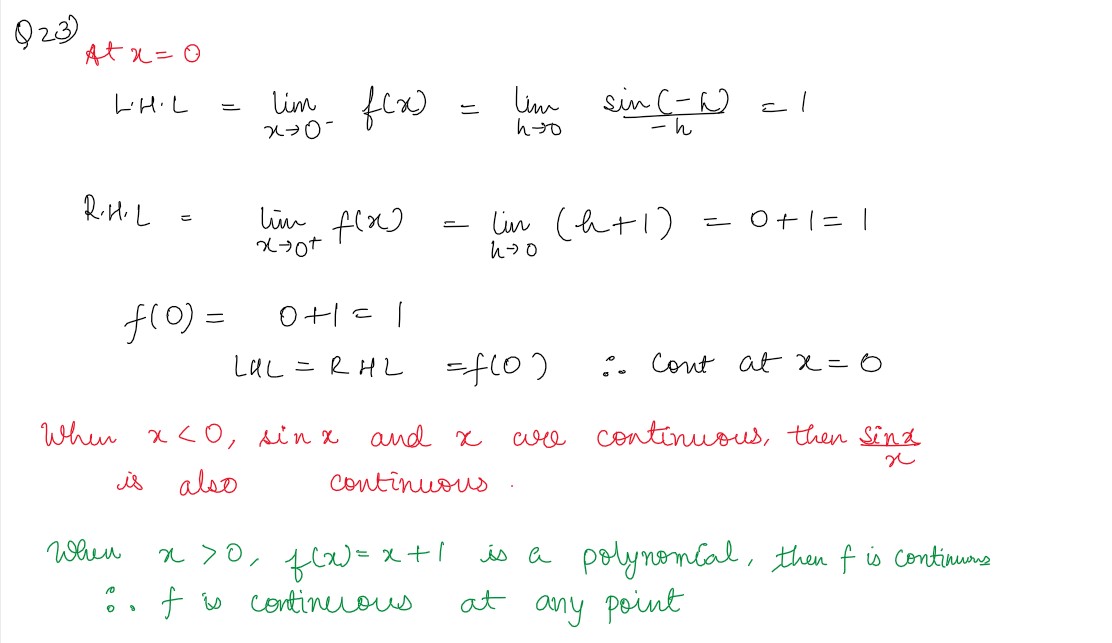 Q 23)
At x = 0
L.H.L = lim x→0⁻ f(x) = lim h→0 sin(-h)/-h = 1
R.H.L = lim x→0⁺ f(x) = lim h→0 (h+1) = 0+1 = 1
f(0) = 0+1 = 1
LHL = RHL = f(0) ∴ Cont at x = 0
When x < 0, sin x and x are continuous, then sin x/x
is also continuous.
When x > 0, f(x) = x+1 is a polynomial, then f is continuous
∴ f is continuous at any point